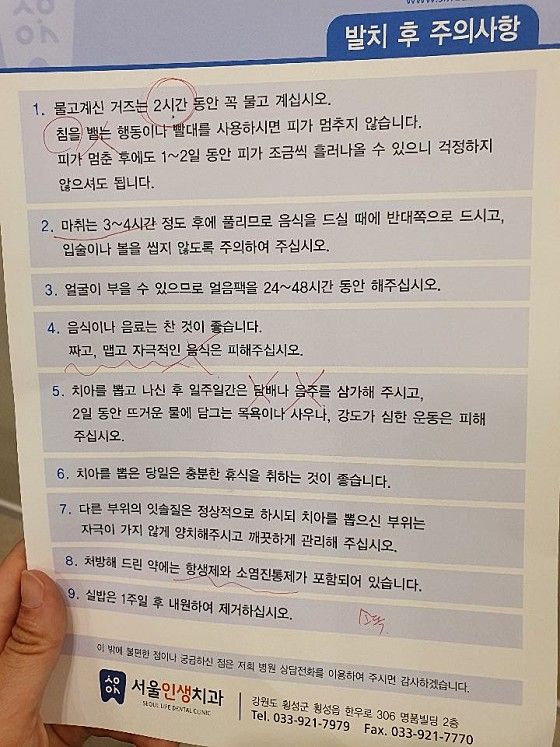 발치 후 주의사항
1. 물고계신 거즈는 2시간 동안 꼭 물고 계십시오.
침을 뱉는 행동이나 빨대를 사용하시면 피가 멈추지 않습니다.
피가 멈춘 후에도 1~2일 동안 피가 조금씩 흘러나올 수 있으니 걱정하지
않으셔도 됩니다.
2. 마취는 3~4시간 정도 후에 풀리므로 음식을 드실 때에 반대쪽으로 드시고,
입술이나 볼을 씹지 않도록 주의하여 주십시오.
3. 얼굴이 부을 수 있으므로 얼음팩을 24~48시간 동안 해주십시오.
4. 음식이나 음료는 찬 것이 좋습니다.
짜고, 맵고 자극적인 음식은 피해주십시오.
5. 치아를 뽑고 나신 후 일주일간은 담배나 음주를 삼가해 주시고,
2일 동안 뜨거운 물에 담그는 목욕이나 사우나, 강도가 심한 운동은 피해
주십시오.
6. 치아를 뽑은 당일은 충분한 휴식을 취하는 것이 좋습니다.
7. 다른 부위의 잇솔질은 정상적으로 하시되 치아를 뽑으신 부위는
자극이 가지 않게 양치해주시고 깨끗하게 관리해 주십시오.
8. 처방해 드린 약에는 항생제와 소염진통제가 포함되어 있습니다.
9. 실밥은 1주일 후 내원하여 제거하십시오.
소독
이 밖에 불편한 점이나 궁금하신 점은 저희 병원 상담전화를 이용하여 주시면 감사하겠습니다.
서울인생치과
SEOUL LIFE DENTAL CLINIC
강원도 횡성군 횡성읍 한우로 306 명품빌딩 2층
Tel. 033-921-7979 Fax. 033-921-7770